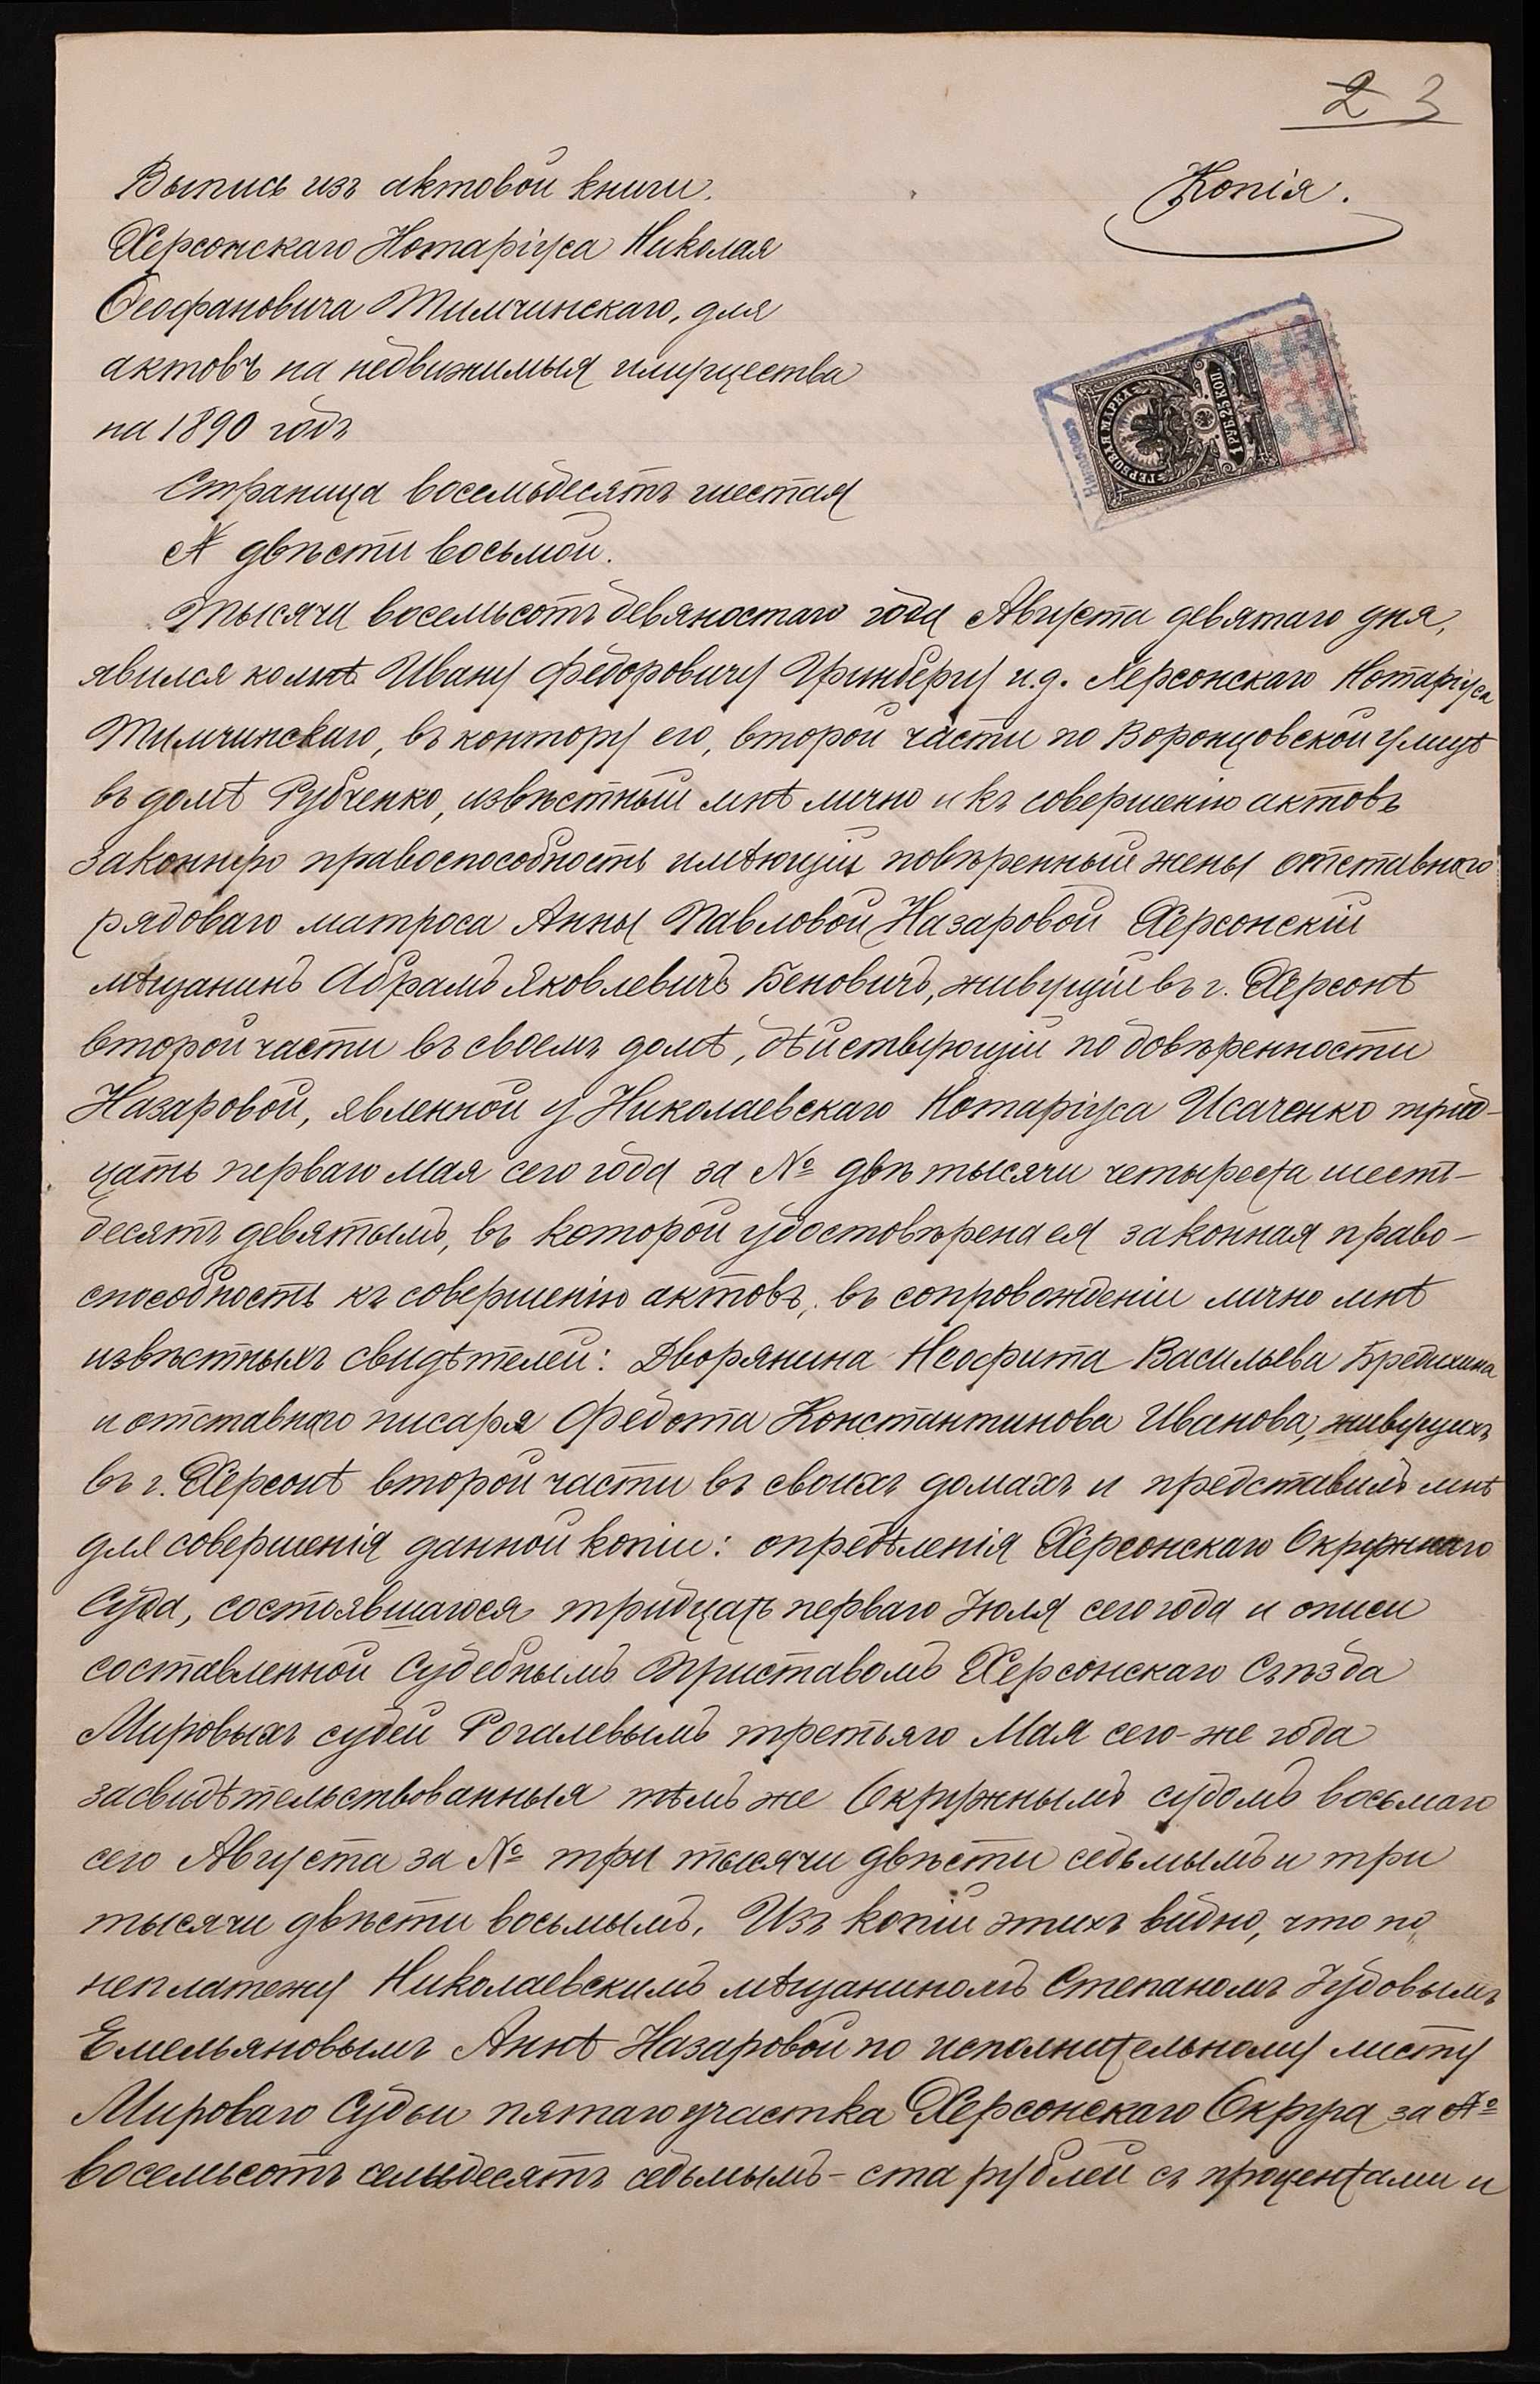 2 3
Выпись изъ актовой книги
Копія.
Херсонскаго Нотаріуса Николая
Ѳеофановича Тимчинскаго, для
актовъ на недвижимыя имущества
на 1890 годъ
Страница восемьдесятъ шестая
№ двѣсти восьмой.
Тысяча восемьсотъ девяностаго года Августа девятаго дня,
явился ко мнѣ Ивану Федоровичу Гринбергу и.д. Херсонскаго Нотаріуса
Тимчинскаго, въ контору его, второй части по Воронцовской улицѣ
въ домѣ Рубченко, извѣстный мнѣ лично и къ совершенію актовъ
законную правоспособность имѣющій повѣренный жены отставного
рядоваго матроса Анны Павловой Назаровой Херсонскій
мѣщанинъ Абрамъ Яковлевичъ Беновичъ, живущій въ г. Херсонѣ
второй части въ своемъ домѣ, дѣйствующій по довѣренности
Назаровой, явленной у Николаевскаго Нотаріуса Исаченко трид-
цать перваго Мая сего года за № двѣ тысячи четыреста шесть-
десятъ девятымъ, въ которой удостовѣрена ея законная право-
способность къ совершенію актовъ, въ сопровожденіи лично мнѣ
извѣстныхъ свидѣтелей: Дворянина Неофита Васильева Бредихина
и отставнаго писаря Федота Константинова Иванова, живущихъ
въ г. Херсонѣ второй части въ своихъ домахъ и представилъ мнѣ
для совершенія данной копіи: опредѣленія Херсонскаго Окружнаго
Суда, состоявшагося тридцать перваго Іюля сего года и описи
составленной Судебнымъ Приставомъ Херсонскаго Съѣзда
Мировыхъ судей Рогалевымъ третьяго Мая сего-же года
засвидѣтельствованныя тѣмъ же Окружнымъ судомъ восьмаго
сего Августа за № три тысячи двѣсти седьмымъ и три
тысячи двѣсти восьмымъ. Изъ копій этихъ видно, что по
неплатежу Николаевскимъ мѣщаниномъ Степаномъ Іудовымъ
Емельяновымъ Аннѣ Назаровой по исполнительному листу
Мироваго Судьи пятаго участка Херсонскаго Округа за №
восемьсотъ семьдесятъ седьмымъ - ста рублей съ процентами и
ГЕРБОВАЯ МАРКА
1 РУБ. 25 КОП.